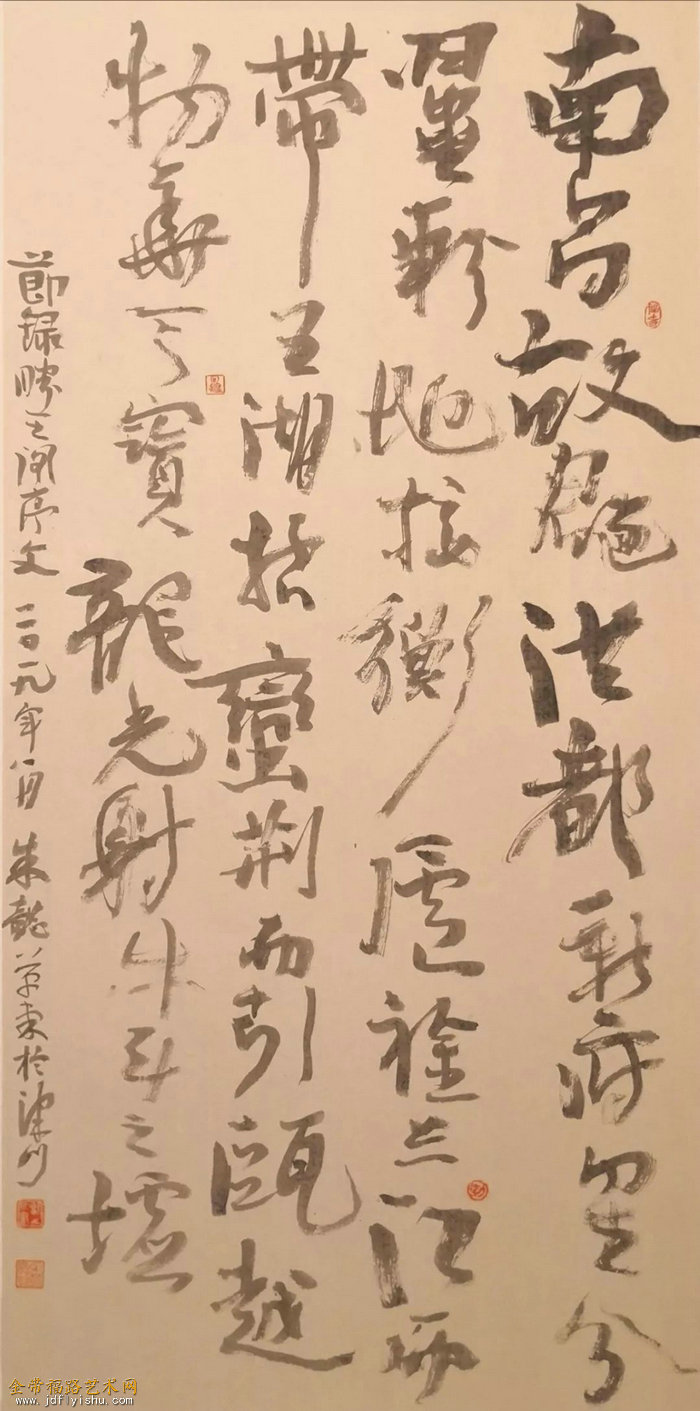 南昌故郡洪都新府星分
翼軫地接衡廬襟三江而
帶五湖控蠻荊而引甌越
物華天寶龍光射牛斗之墟
節録滕王閣序文 二〇一九年八月 朱懿 於
金带福路艺术网
www.jdflyishu.com